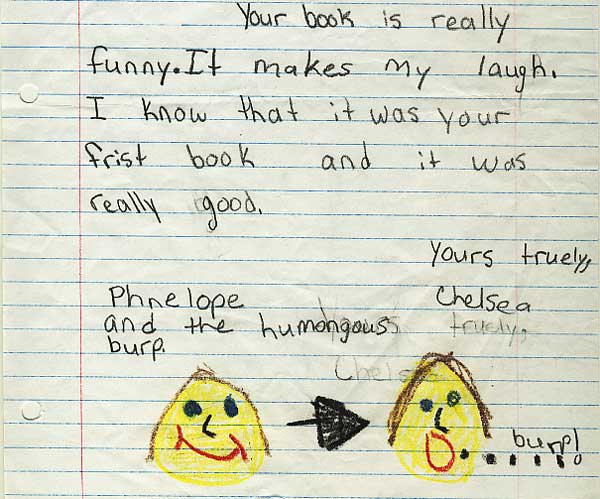 Your book is really
funny.It makes my laugh.
I know that it was your
frist book and it was
really good.
Yours truely,
Chelsea
Phnelope
and the humongous
burp.
truely,
Chelsea
burp!